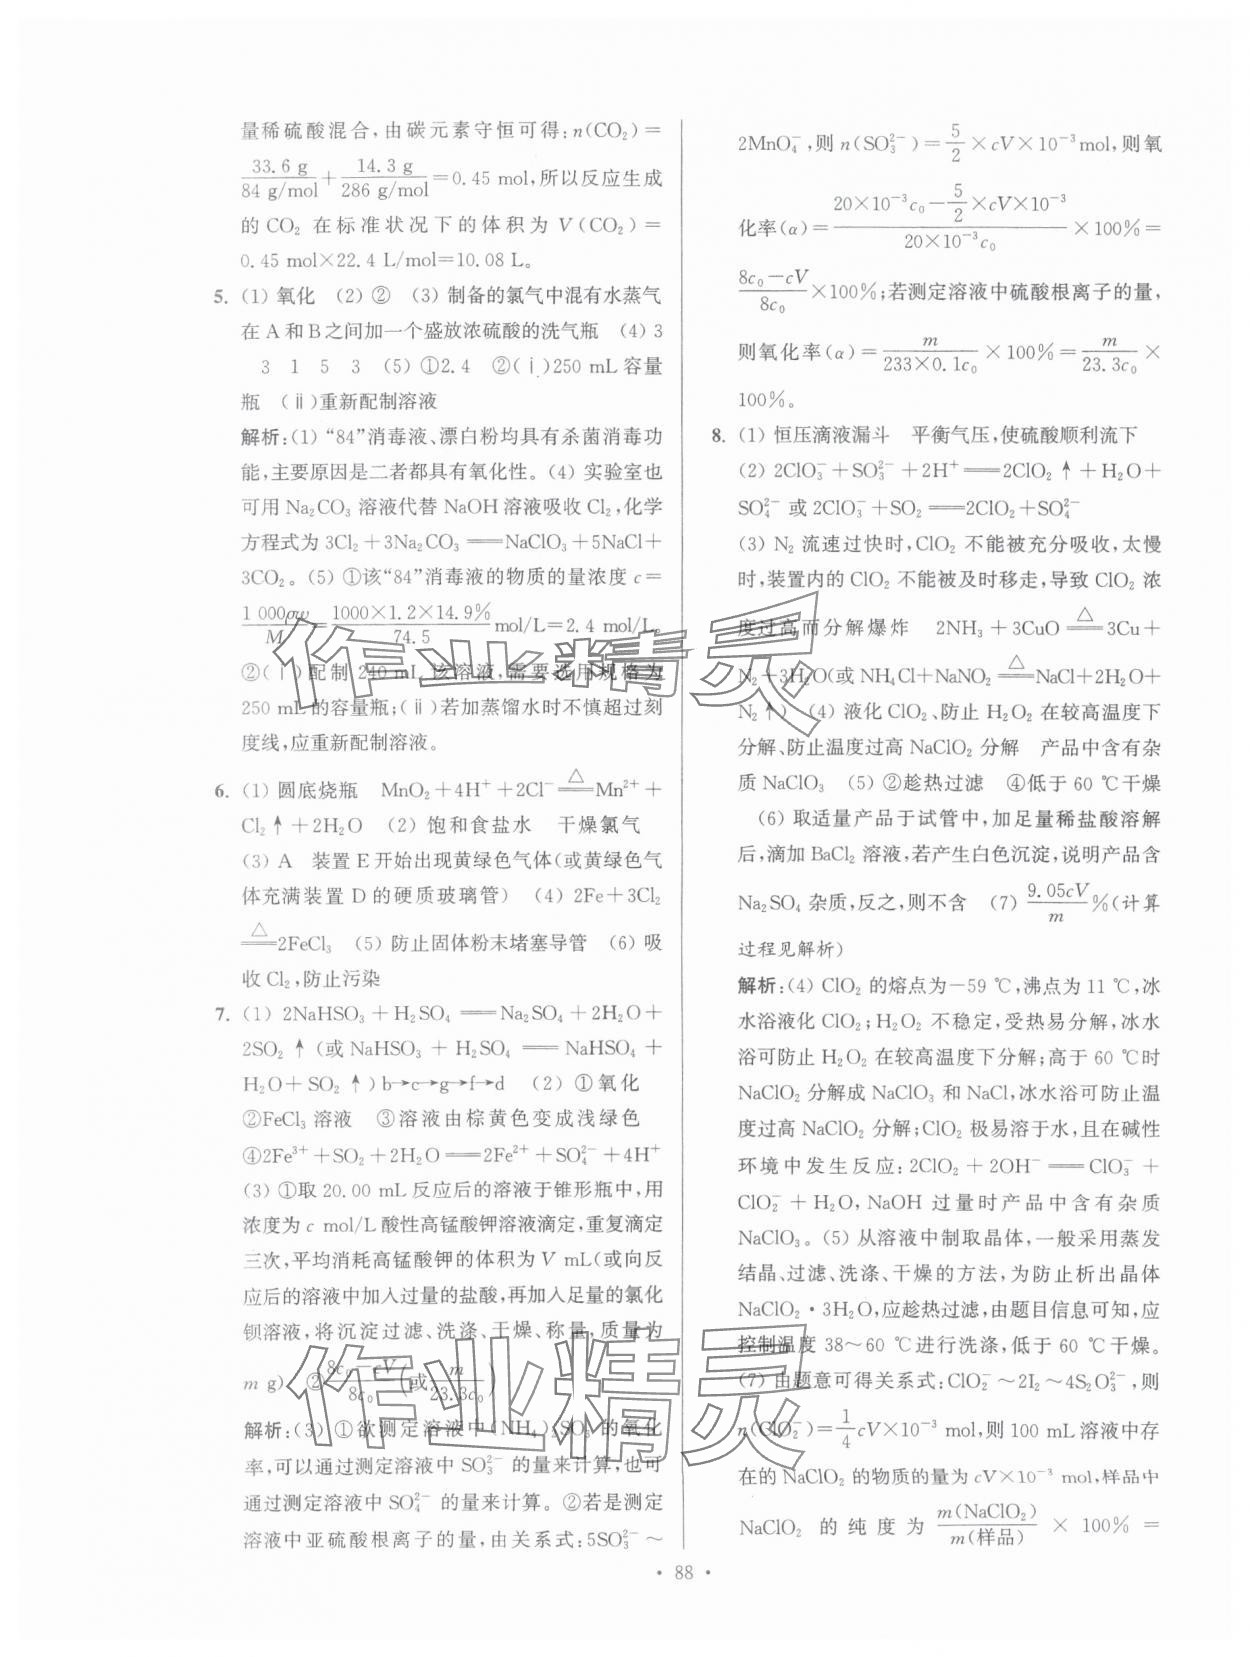 量稀硫酸混合,由碳元素守恒可得:n(CO₂)=
33.6 g/84 g/mol+14.3 g/286 g/mol=0.45 mol,所以反应生成
的 CO₂ 在标准状况下的体积为 V(CO₂)=
0.45 mol×22.4 L/mol=10.08 L。
5. (1) 氧化 (2) ② (3) 制备的氯气中混有水蒸气
在 A 和 B 之间加一个盛放浓硫酸的洗气瓶 (4) 3
3 1 5 3 (5) ①2.4 ②(ⅰ)250 mL 容量
瓶 (ⅱ)重新配制溶液
解析:(1) “84”消毒液、漂白粉均具有杀菌消毒功
能,主要原因是二者都具有氧化性。(4) 实验室也
可用 Na₂CO₃ 溶液代替 NaOH 溶液吸收 Cl₂,化学
方程式为 3Cl₂+3Na₂CO₃══NaClO₃+5NaCl+
3CO₂。(5) ①该“84”消毒液的物质的量浓度 c=
1 000ρw/M=1000×1.2×14.9%/74.5 mol/L=2.4 mol/L。
②(ⅰ)配制 240 mL 该溶液,需要选用规格为
250 mL 的容量瓶;(ⅱ)若加蒸馏水时不慎超过刻
度线,应重新配制溶液。
6. (1) 圆底烧瓶 MnO₂+4H⁺+2Cl⁻═△═Mn²⁺+
Cl₂↑+2H₂O (2) 饱和食盐水 干燥氯气
(3) A 装置 E 开始出现黄绿色气体(或黄绿色气
体充满装置 D 的硬质玻璃管) (4) 2Fe+3Cl₂
═△═2FeCl₃ (5) 防止固体粉末堵塞导管 (6) 吸
收 Cl₂,防止污染
7. (1) 2NaHSO₃+H₂SO₄══Na₂SO₄+2H₂O+
2SO₂↑(或 NaHSO₃+H₂SO₄══NaHSO₄+
H₂O+SO₂↑) b→c→g→f→d (2) ①氧化
②FeCl₃ 溶液 ③溶液由棕黄色变成浅绿色
④2Fe³⁺+SO₂+2H₂O══2Fe²⁺+SO₄²⁻+4H⁺
(3) ①取 20.00 mL 反应后的溶液于锥形瓶中,用
浓度为 c mol/L 酸性高锰酸钾溶液滴定,重复滴定
三次,平均消耗高锰酸钾的体积为 V mL(或向反
应后的溶液中加入过量的盐酸,再加入足量的氯化
钡溶液,将沉淀过滤、洗涤、干燥、称量,质量为
m g) ②8c₀−cV/8c₀(或m/23.3c₀)
解析:(3) ①欲测定溶液中(NH₄)₂SO₃ 的氧化
率,可以通过测定溶液中 SO₃²⁻ 的量来计算,也可
通过测定溶液中 SO₄²⁻ 的量来计算。②若是测定
溶液中亚硫酸根离子的量,由关系式:5SO₃²⁻~
2MnO₄⁻,则 n(SO₃²⁻)=5/2×cV×10⁻³ mol,则氧
化率(α)=(20×10⁻³c₀−5/2×cV×10⁻³)/(20×10⁻³c₀)×100%=
8c₀−cV/8c₀×100%;若测定溶液中硫酸根离子的量,
则氧化率(α)=m/(233×0.1c₀)×100%=m/23.3c₀×
100%。
8. (1) 恒压滴液漏斗 平衡气压,使硫酸顺利流下
(2) 2ClO₃⁻+SO₃²⁻+2H⁺══2ClO₂↑+H₂O+
SO₄²⁻ 或 2ClO₃⁻+SO₂══2ClO₂+SO₄²⁻
(3) N₂ 流速过快时,ClO₂ 不能被充分吸收,太慢
时,装置内的 ClO₂ 不能被及时移走,导致 ClO₂ 浓
度过高而分解爆炸 2NH₃+3CuO═△═3Cu+
N₂+3H₂O(或 NH₄Cl+NaNO₂═△═NaCl+2H₂O+
N₂↑) (4) 液化 ClO₂、防止 H₂O₂ 在较高温度下
分解、防止温度过高 NaClO₂ 分解 产品中含有杂
质 NaClO₃ (5) ②趁热过滤 ④低于 60 ℃干燥
(6) 取适量产品于试管中,加足量稀盐酸溶解
后,滴加 BaCl₂ 溶液,若产生白色沉淀,说明产品含
Na₂SO₄ 杂质,反之,则不含 (7) 9.05cV/m%(计算
过程见解析)
解析:(4) ClO₂ 的熔点为−59 ℃,沸点为 11 ℃,冰
水浴液化 ClO₂;H₂O₂ 不稳定,受热易分解,冰水
浴可防止 H₂O₂ 在较高温度下分解;高于 60 ℃时
NaClO₂ 分解成 NaClO₃ 和 NaCl,冰水浴可防止温
度过高 NaClO₂ 分解;ClO₂ 极易溶于水,且在碱性
环境中发生反应:2ClO₂+2OH⁻══ClO₃⁻+
ClO₂⁻+H₂O,NaOH 过量时产品中含有杂质
NaClO₃。(5) 从溶液中制取晶体,一般采用蒸发
结晶、过滤、洗涤、干燥的方法,为防止析出晶体
NaClO₂·3H₂O,应趁热过滤,由题目信息可知,应
控制温度 38~60 ℃进行洗涤,低于 60 ℃干燥。
(7) 由题意可得关系式:ClO₂⁻~2I₂~4S₂O₃²⁻,则
n(ClO₂⁻)=1/4cV×10⁻³ mol,则 100 mL 溶液中存
在的 NaClO₂ 的物质的量为 cV×10⁻³ mol,样品中
NaClO₂ 的纯度为 m(NaClO₂)/m(样品)×100%=
·88·
作业精灵
作业精灵